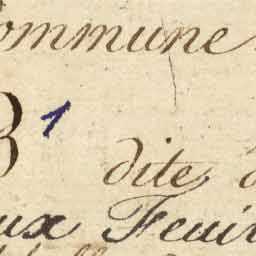 ommune
B 1 dite
ux Feuil